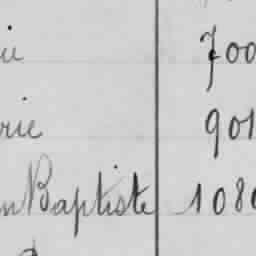 ie 700
rie 901
n Baptiste 1080